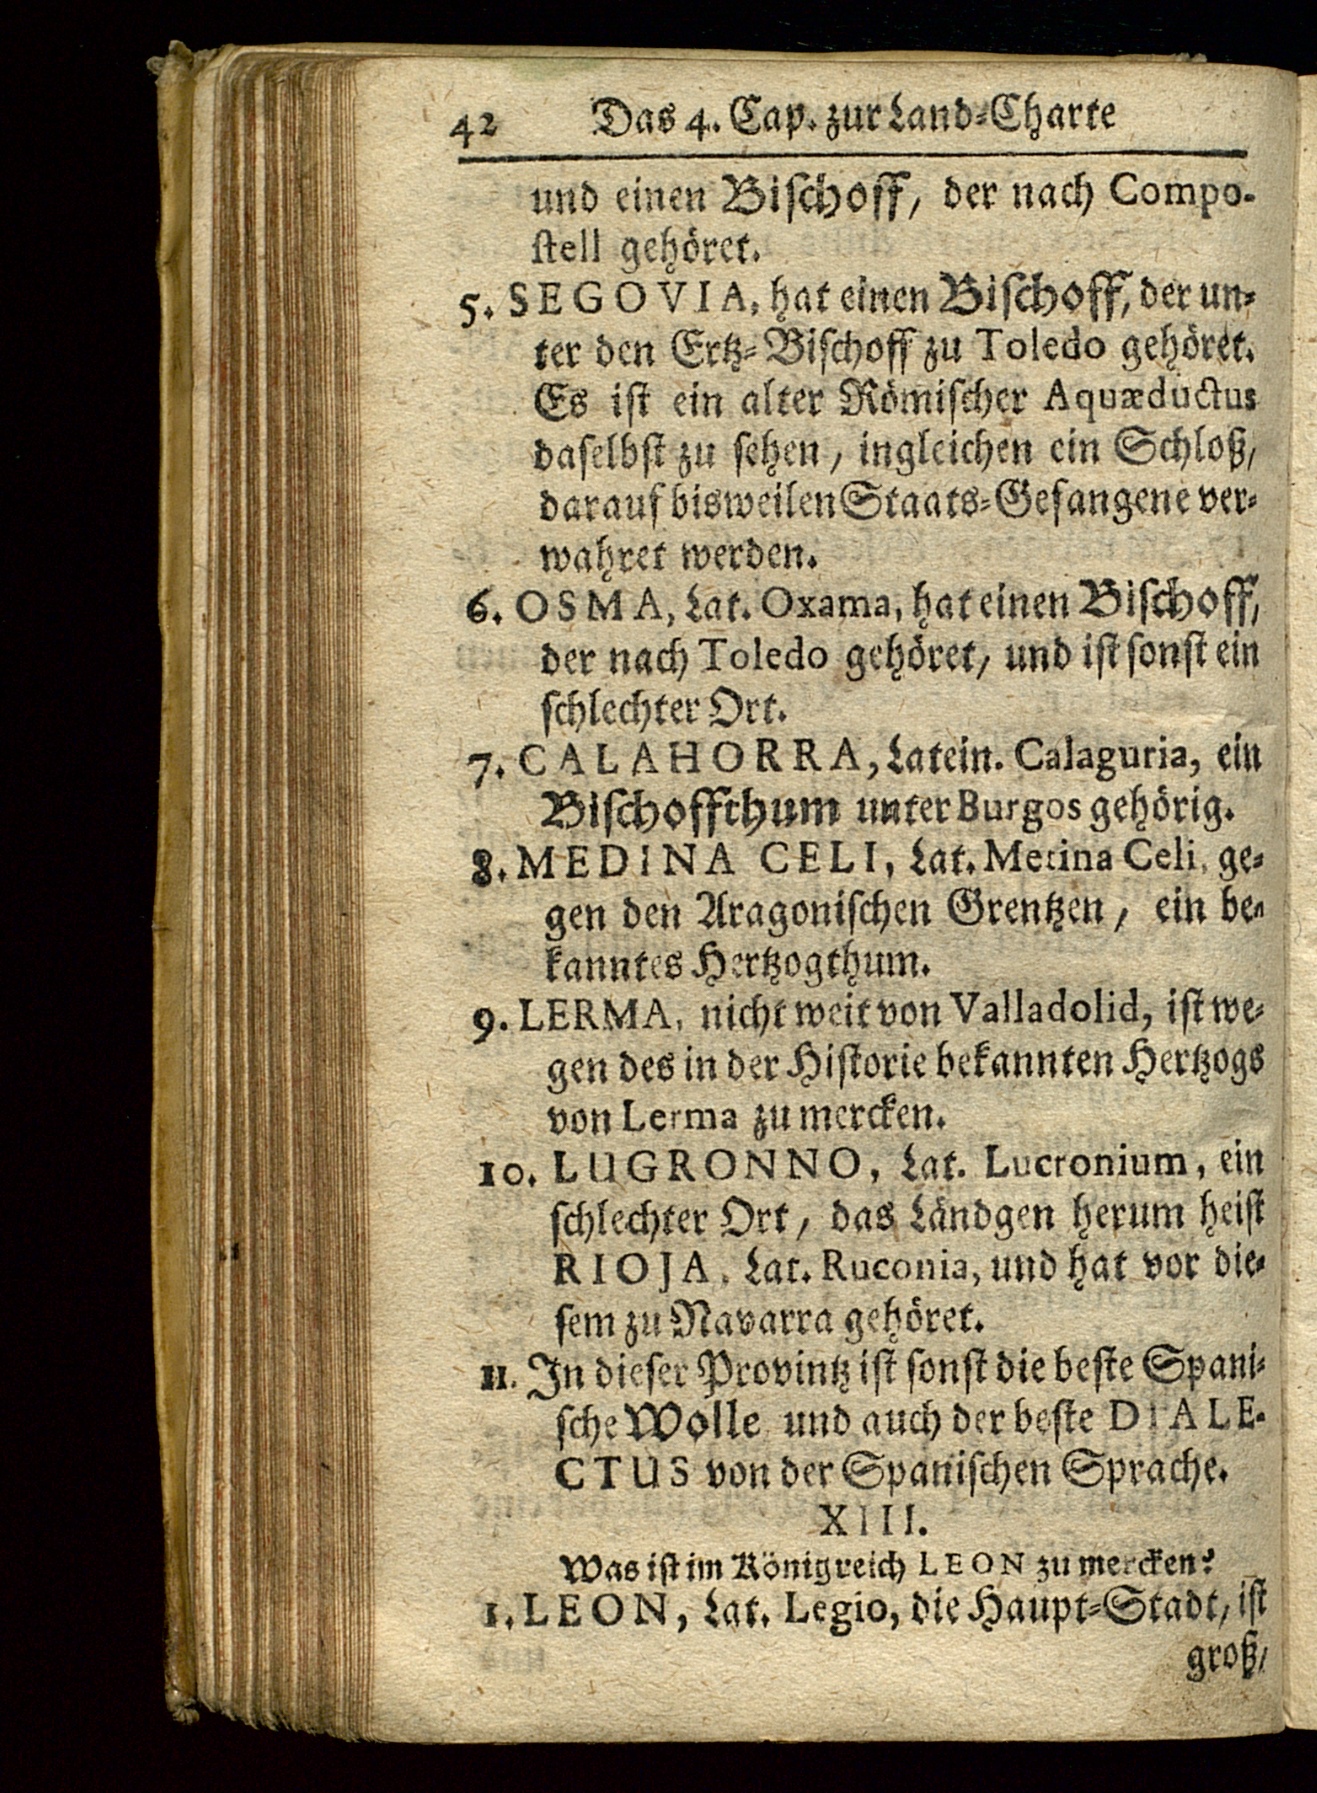 42 Das 4. Cap. zur Land-Charte
und einen Bischoff, der nach Compo-
stell gehöret.
5. SEGOVIA, hat einen Bischoff, der un-
ter den Ertz-Bischoff zu Toledo gehöret.
Es ist ein alter Römischer Aquæductus
daselbst zu sehen, ingleichen ein Schloß,
darauf bisweilen Staats-Gefangene ver-
wahret werden.
6. OSMA, Lat. Oxama, hat einen Bischoff,
der nach Toledo gehöret, und ist sonst ein
schlechter Ort.
7. CALAHORRA, Latein. Calaguria, ein
Bischoffthum unter Burgos gehörig.
8. MEDINA CELI, Lat. Metina Celi, ge-
gen den Aragonischen Grentzen, ein be-
kanntes Hertzogthum.
9. LERMA, nicht weit von Valladolid, ist we-
gen des in der Historie bekannten Hertzogs
von Lerma zu mercken.
10. LUGRONNO, Lat. Lucronium, ein
schlechter Ort, das Ländgen herum heist
RIOJA, Lat. Ruconia, und hat vor die-
sem zu Navarra gehöret.
11. In dieser Provintz ist sonst die beste Spani-
sche Wolle und auch der beste DIALE-
CTUS von der Spanischen Sprache.
XIII.
Was ist im Königreich LEON zu mercken?
1. LEON, Lat. Legio, die Haupt-Stadt, ist
groß,